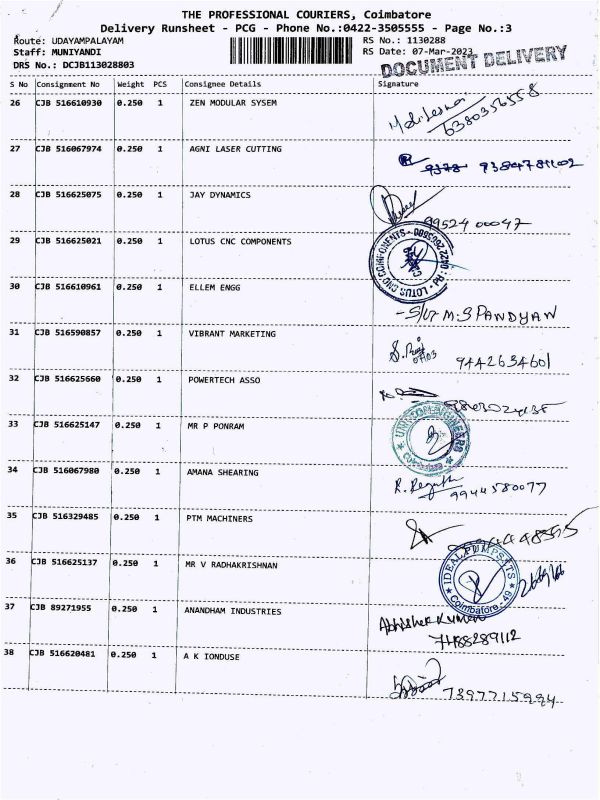 THE PROFESSIONAL COURIERS, Coimbatore
Delivery Runsheet - PCG - Phone No.:0422-3505555 - Page No.:3
Route: UDAYAMPALAYAM RS No.: 1130288
Staff: MUNIYANDI RS Date: 07-Mar-2023
DRS No.: DCJB113028803 DOCUMENT DELIVERY
S No Consignment No Weight PCS Consignee Details Signature
26 CJB 516610930 0.250 1 ZEN MODULAR SYSEM
6380356558
27 CJB 516067974 0.250 1 AGNI LASER CUTTING
28 CJB 516625075 0.250 1 JAY DYNAMICS
99524 00047
29 CJB 516625021 0.250 1 LOTUS CNC COMPONENTS
LOTUS CNC COMPONENTS
30 CJB 516610961 0.250 1 ELLEM ENGG
M.S PANDYAN
31 CJB 516590857 0.250 1 VIBRANT MARKETING
9442634601
32 CJB 516625660 0.250 1 POWERTECH ASSO
33 CJB 516625147 0.250 1 MR P PONRAM
Coimbatore
34 CJB 516067980 0.250 1 AMANA SHEARING
9944580077
35 CJB 516329485 0.250 1 PTM MACHINERS
36 CJB 516625137 0.250 1 MR V RADHAKRISHNAN
IDEAL PUMPSETS
Coimbatore - 49
37 CJB 89271955 0.250 1 ANANDHAM INDUSTRIES
Abhishek Kumar
7488289112
38 CJB 516620481 0.250 1 A K IONDUSE